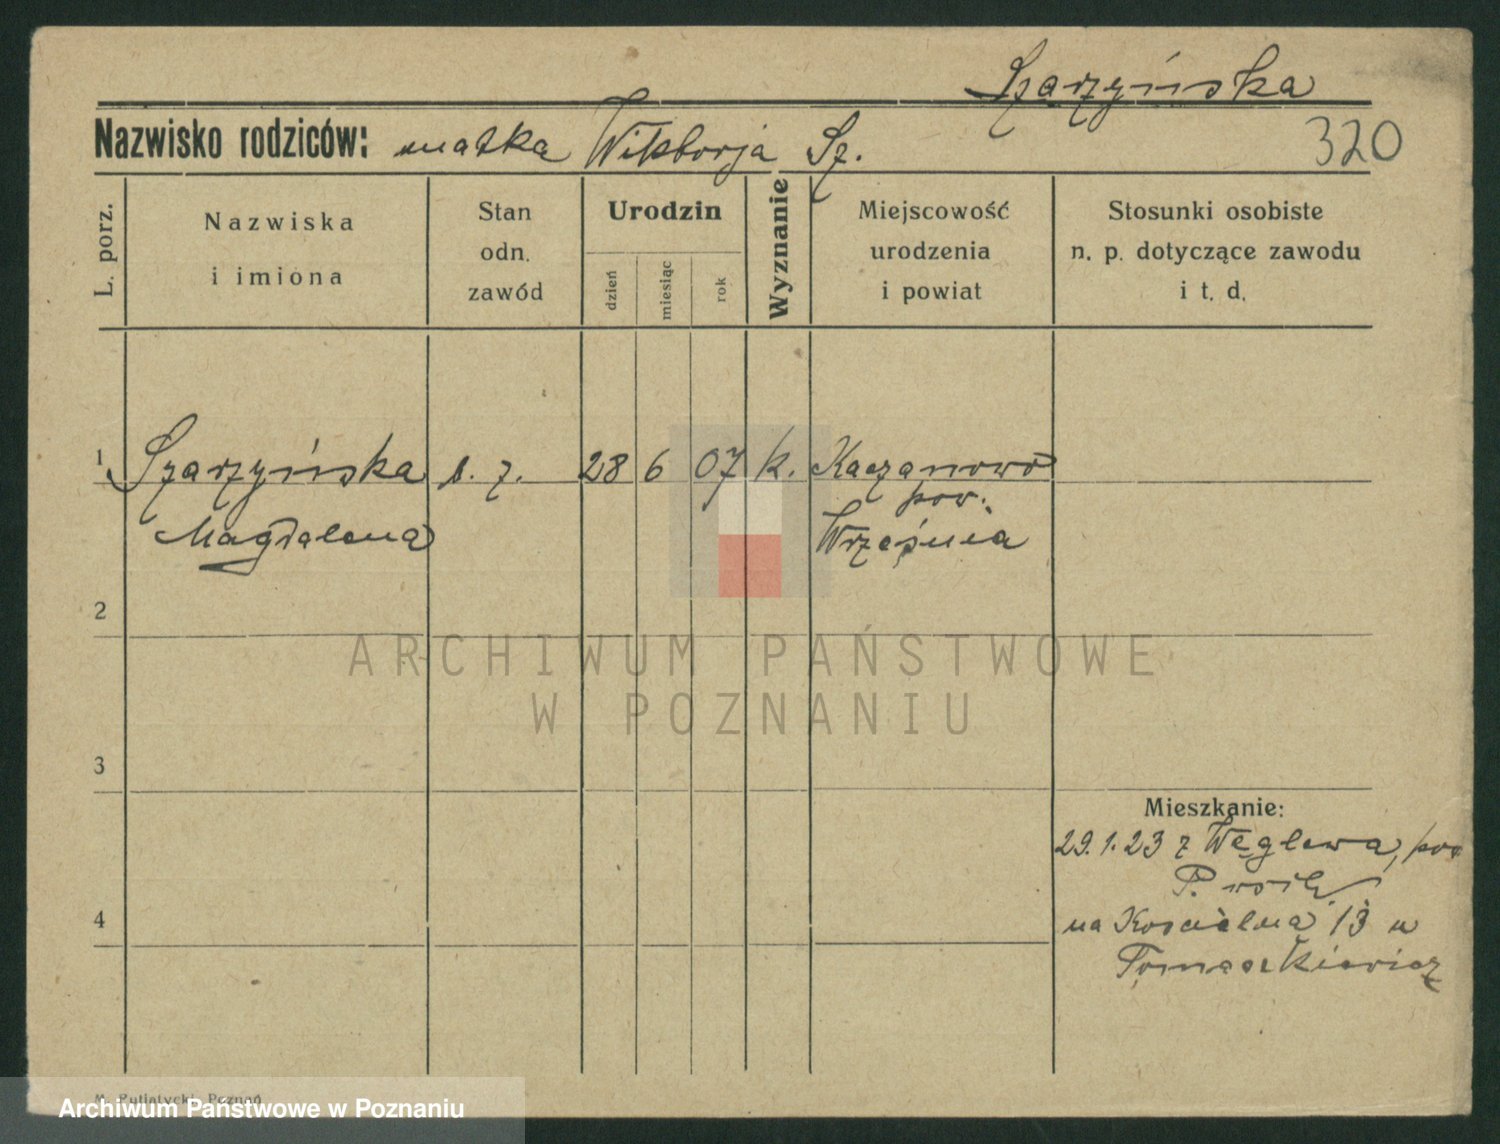 Szarzyńska
Nazwisko rodziców: matka Wiktorja Sz.
320
L. porz.
Nazwiska
i imiona
Stan
odn.
zawód
Urodzin
dzień
miesiąc
rok
Wyznanie
Miejscowość
urodzenia
i powiat
Stosunki osobiste
n. p. dotyczące zawodu
i t. d.
1 Szarzyńska 28 6 07 k. Kaczanowo
pow.
Magdalena Września
2
ARCHIWUM PAŃSTWOWE
W POZNANIU
3
Mieszkanie:
29.1.23 z Węglewa, pow
4
na Kościelna 13 u
Tomaszkiewicz
M. Putiatycki, Poznań
Archiwum Państwowe w Poznaniu